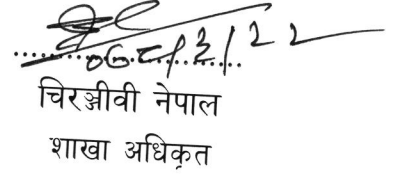 ०७८/३/२२
चिरञ्जीवी नेपाल
शाखा अधिकृत